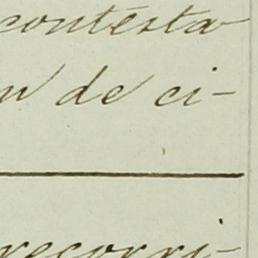 contesta
n de ci-
recorri-